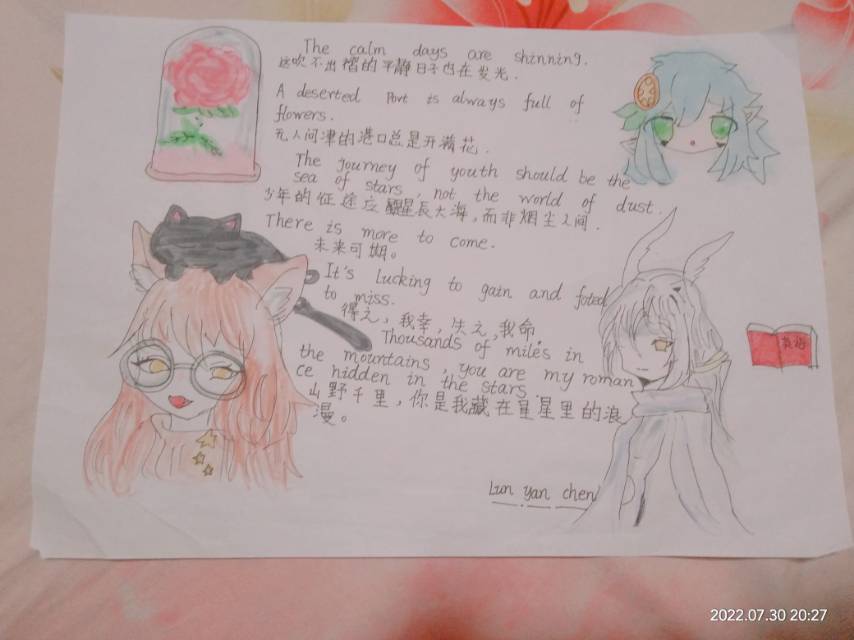 The calm days are shinning.
这吹不出褶的平静日子也在发光.
A deserted Port is always full of
flowers.
无人问津的港口总是开满花.
The journey of youth should be the
sea of stars, not the world of dust.
少年的征途应 星辰大海，而非烟尘人间.
There is more to come.
未来可期。
It's Lucking to gain and foted
to miss.
得之，我幸，失之，我命.
Thousands of miles in
the mountains, you are my roman
ce hidden in the stars.
山野千里，你是我藏在星星里的浪
漫。
英语
Lun yan chen
2022.07.30 20:27